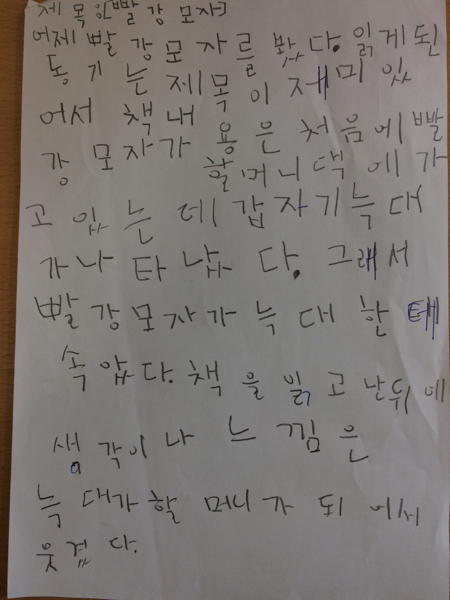 제목은[빨강모자]
어제 빨강모자를 봤다. 읽게된
동기는 제목이 재미있
어서 책내용은 처음에 빨
강모자가 할머니댁에 가
고 있는데 갑자기 늑대
가 나타났다. 그래서
빨강모자가 늑대한테
속았다. 책을 읽고 난뒤에
생각이나 느낌은
늑대가 할머니가 되어서
웃겼다.